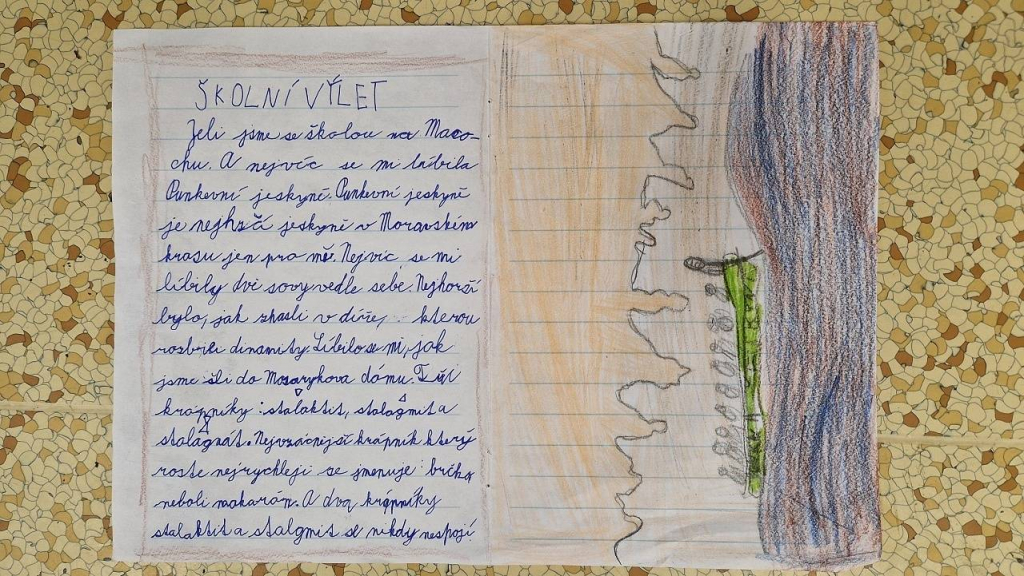 ŠKOLNÍ VÝLET
Jeli jsme se školou na Maco-
chu. A nejvíc se mi líbila
Punkevní jeskyně. Punkevní jeskyně
je nejhzčí jeskyně v Moravském
krasu jen pro mě. Nejvíc se mi
líbily dvě sovy vedle sebe. Nejhorší
bylo, jak zhasli v díře, kterou
rozbili dinamity. Líbilo se mi, jak
jsme šli do Masarykova dómu. Tři
krápníky: stalaktit, stalagmit a
stalagnát. Nejvzácnější krápník který
roste nejrychleji se jmenuje brčko
neboli makarón. A dva krápníky
stalaktit a stalgmit se nikdy nespojí